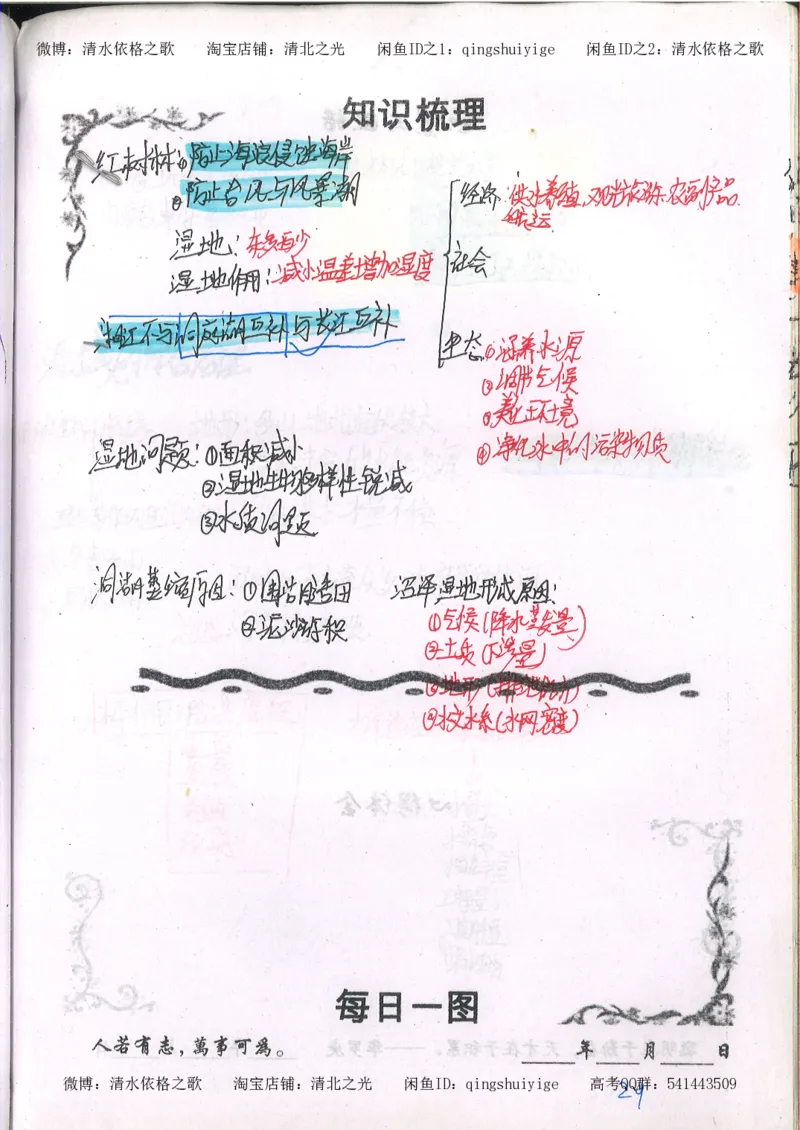 微博：清水依格之歌 淘宝店铺：清北之光 闲鱼ID之1：qingshuiyige 闲鱼ID之2：清水依格之歌
知识梳理
红树林：①防止海浪侵蚀海岸
②防止台风与风暴潮
湿地：东多西少
湿地作用：减小温差增加湿度
经济：供水养殖，观光旅游，农副产品
航运
社会
生态①涵养水源
②调节气候
③美化环境
④净化水中的污染物质
湘江不与洞庭湖互补与长江互补
湿地问题：①面积减小
②湿地生物多样性锐减
③水质问题
洞湖萎缩原因：①围湖造田
②泥沙淤积
沼泽湿地形成原因：
①气候(降水蒸发量)
②土质(下渗量)
③地形
④水文水系(水网密度)
每日一图
人若有志，萬事可為。
年 月 日
微博：清水依格之歌 淘宝店铺：清北之光 闲鱼ID：qingshuiyige 高考QQ群：541443509
29